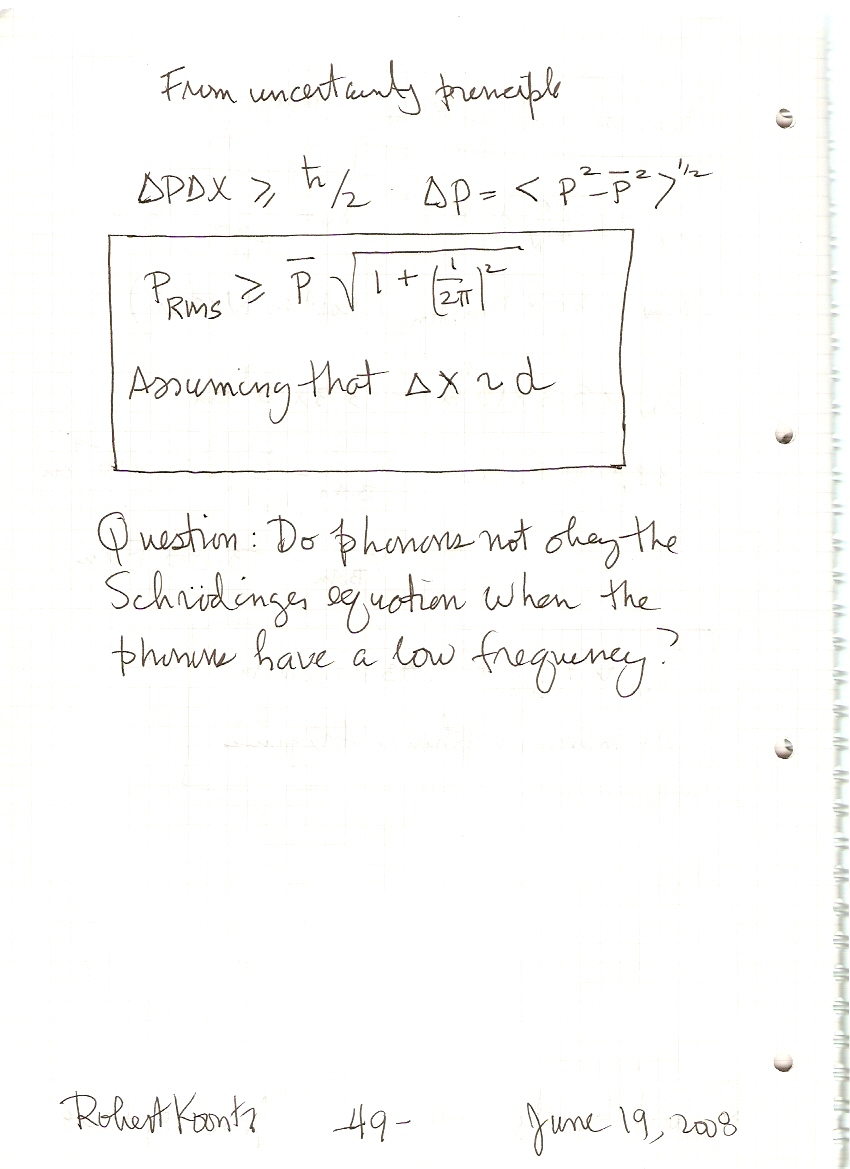 From uncertainty principle
ΔPΔX ≥ ħ/2 · ΔP = < P² - P̄² >^1/2
P_Rms ≥ P̄ √(1 + (1/2π)²)
Assuming that ΔX ~ d
Question: Do phonons not obey the
Schrödinger equation when the
phonons have a low frequency?
Robert Koontz -49- June 19, 2008